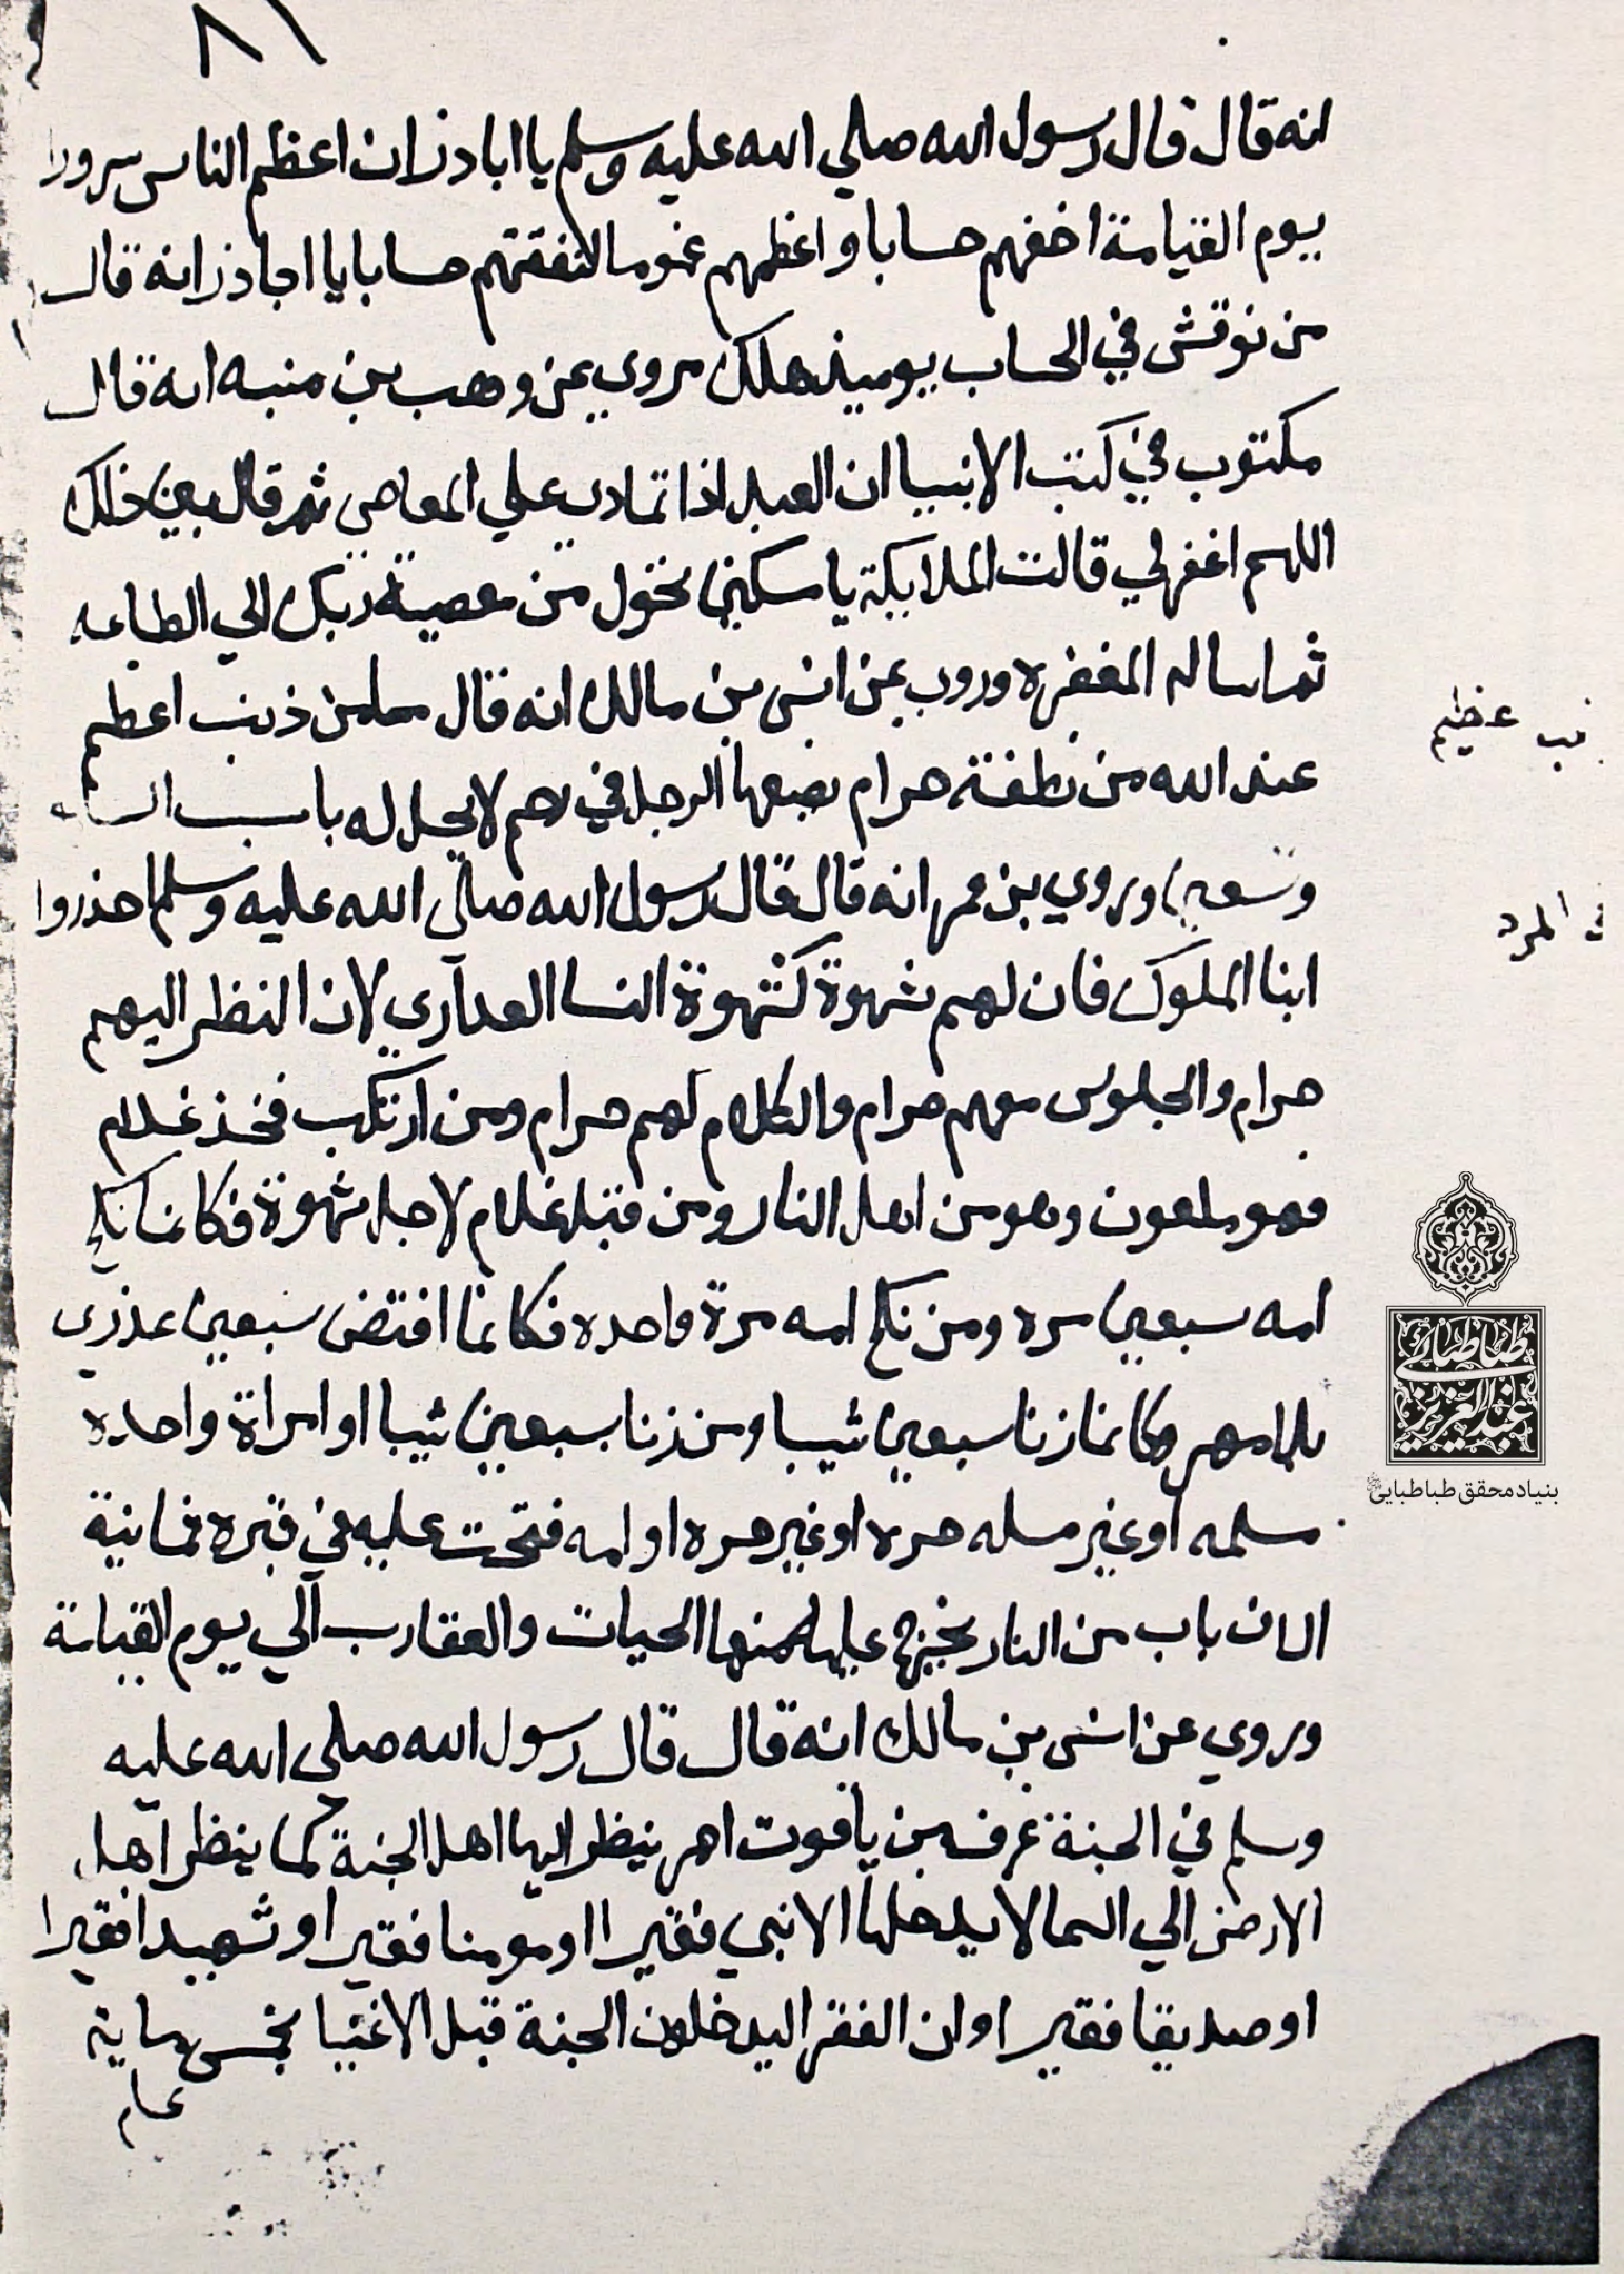 ٨١
انه قال قال رسول الله صلي الله عليه وسلم يا ابا ذر ان اعظم الناس سرورا
يوم القيامة اخفهم حسابا واعظمهم غموما حسابا يا ابا ذر انه قال
من نوقش في الحساب يوميذ هلك وروي عن وهب بن منبه انه قال
مكتوب في كتب الانبيا ان العبد اذا تمادي علي المعاصي ثم قال بعد ذلك
اللهم اغفر لي قالت الملايكة يا مسكين تحول من معصية ربك الي الطاعه
ثم اساله المغفره وروي عن انس بن مالك انه قال ما من ذنب اعظم
عند الله من نطفة حرام يضعها الرجل في رحم لا يحل له باب
وسبعين وروي بن عمر انه قال قال رسول الله صلي الله عليه وسلم احذروا
ابنا الملوك فان لهم شهوة كشهوة النسا العداري لان النظر اليهم
حرام والجلوس معهم حرام والكلام لهم حرام ومن ارتكب فخذ غلام
فهو ملعون وهو من اهل النار ومن قبل غلام لاجل شهوة فكانما نكح
امه سبعين مره ومن نكح امه مرة واحده فكانما افتض سبعين عذري
بلا مهر وكانما زنا سبعين ثيبا ومن زنا سبعين ثيبا او امراة واحده
مسلمه او غير مسلمه حره او غير حره او امه فتحت عليه في قبره ثمانية
الاف باب من النار يخرج عليه منها الحيات والعقارب الي يوم القيامة
وروي عن انس بن مالك انه قال قال رسول الله صلي الله عليه
وسلم في الجنة غرفه من ياقوت احمر ينظر اليها اهل الجنة كما ينظر اهل
الارض الي السما لا يدخلها الا نبي فقيرا او مومنا فقيرا او شهيدا فقيرا
او صديقا فقيرا وان الفقرا ليدخلون الجنة قبل الاغنيا بخمس ماية
عام
عظيم
المرد
طباطبائي
عبد العزيز
بنیاد محقق طباطبایی